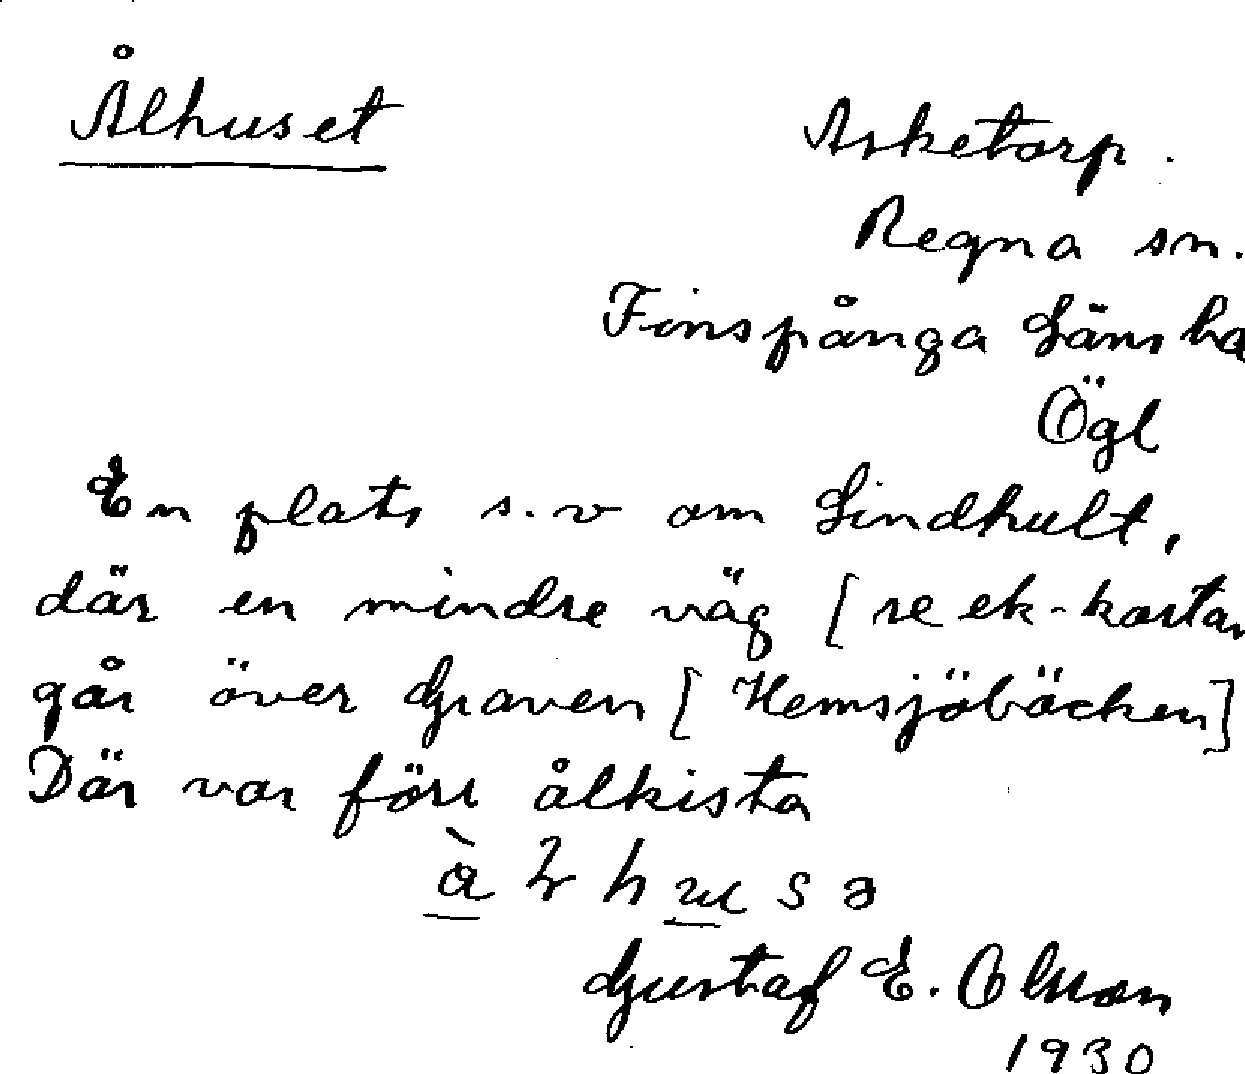 Ålhuset
Asketorp.
Regna sn.
Finspånga Läns ha
Ögl
En plats s.v om Lindhult,
där en mindre väg [se ek-kartan
går över Graven [Hemsjöbäcken]
Där var förr ålkista
Gustaf E. Olsson
1930